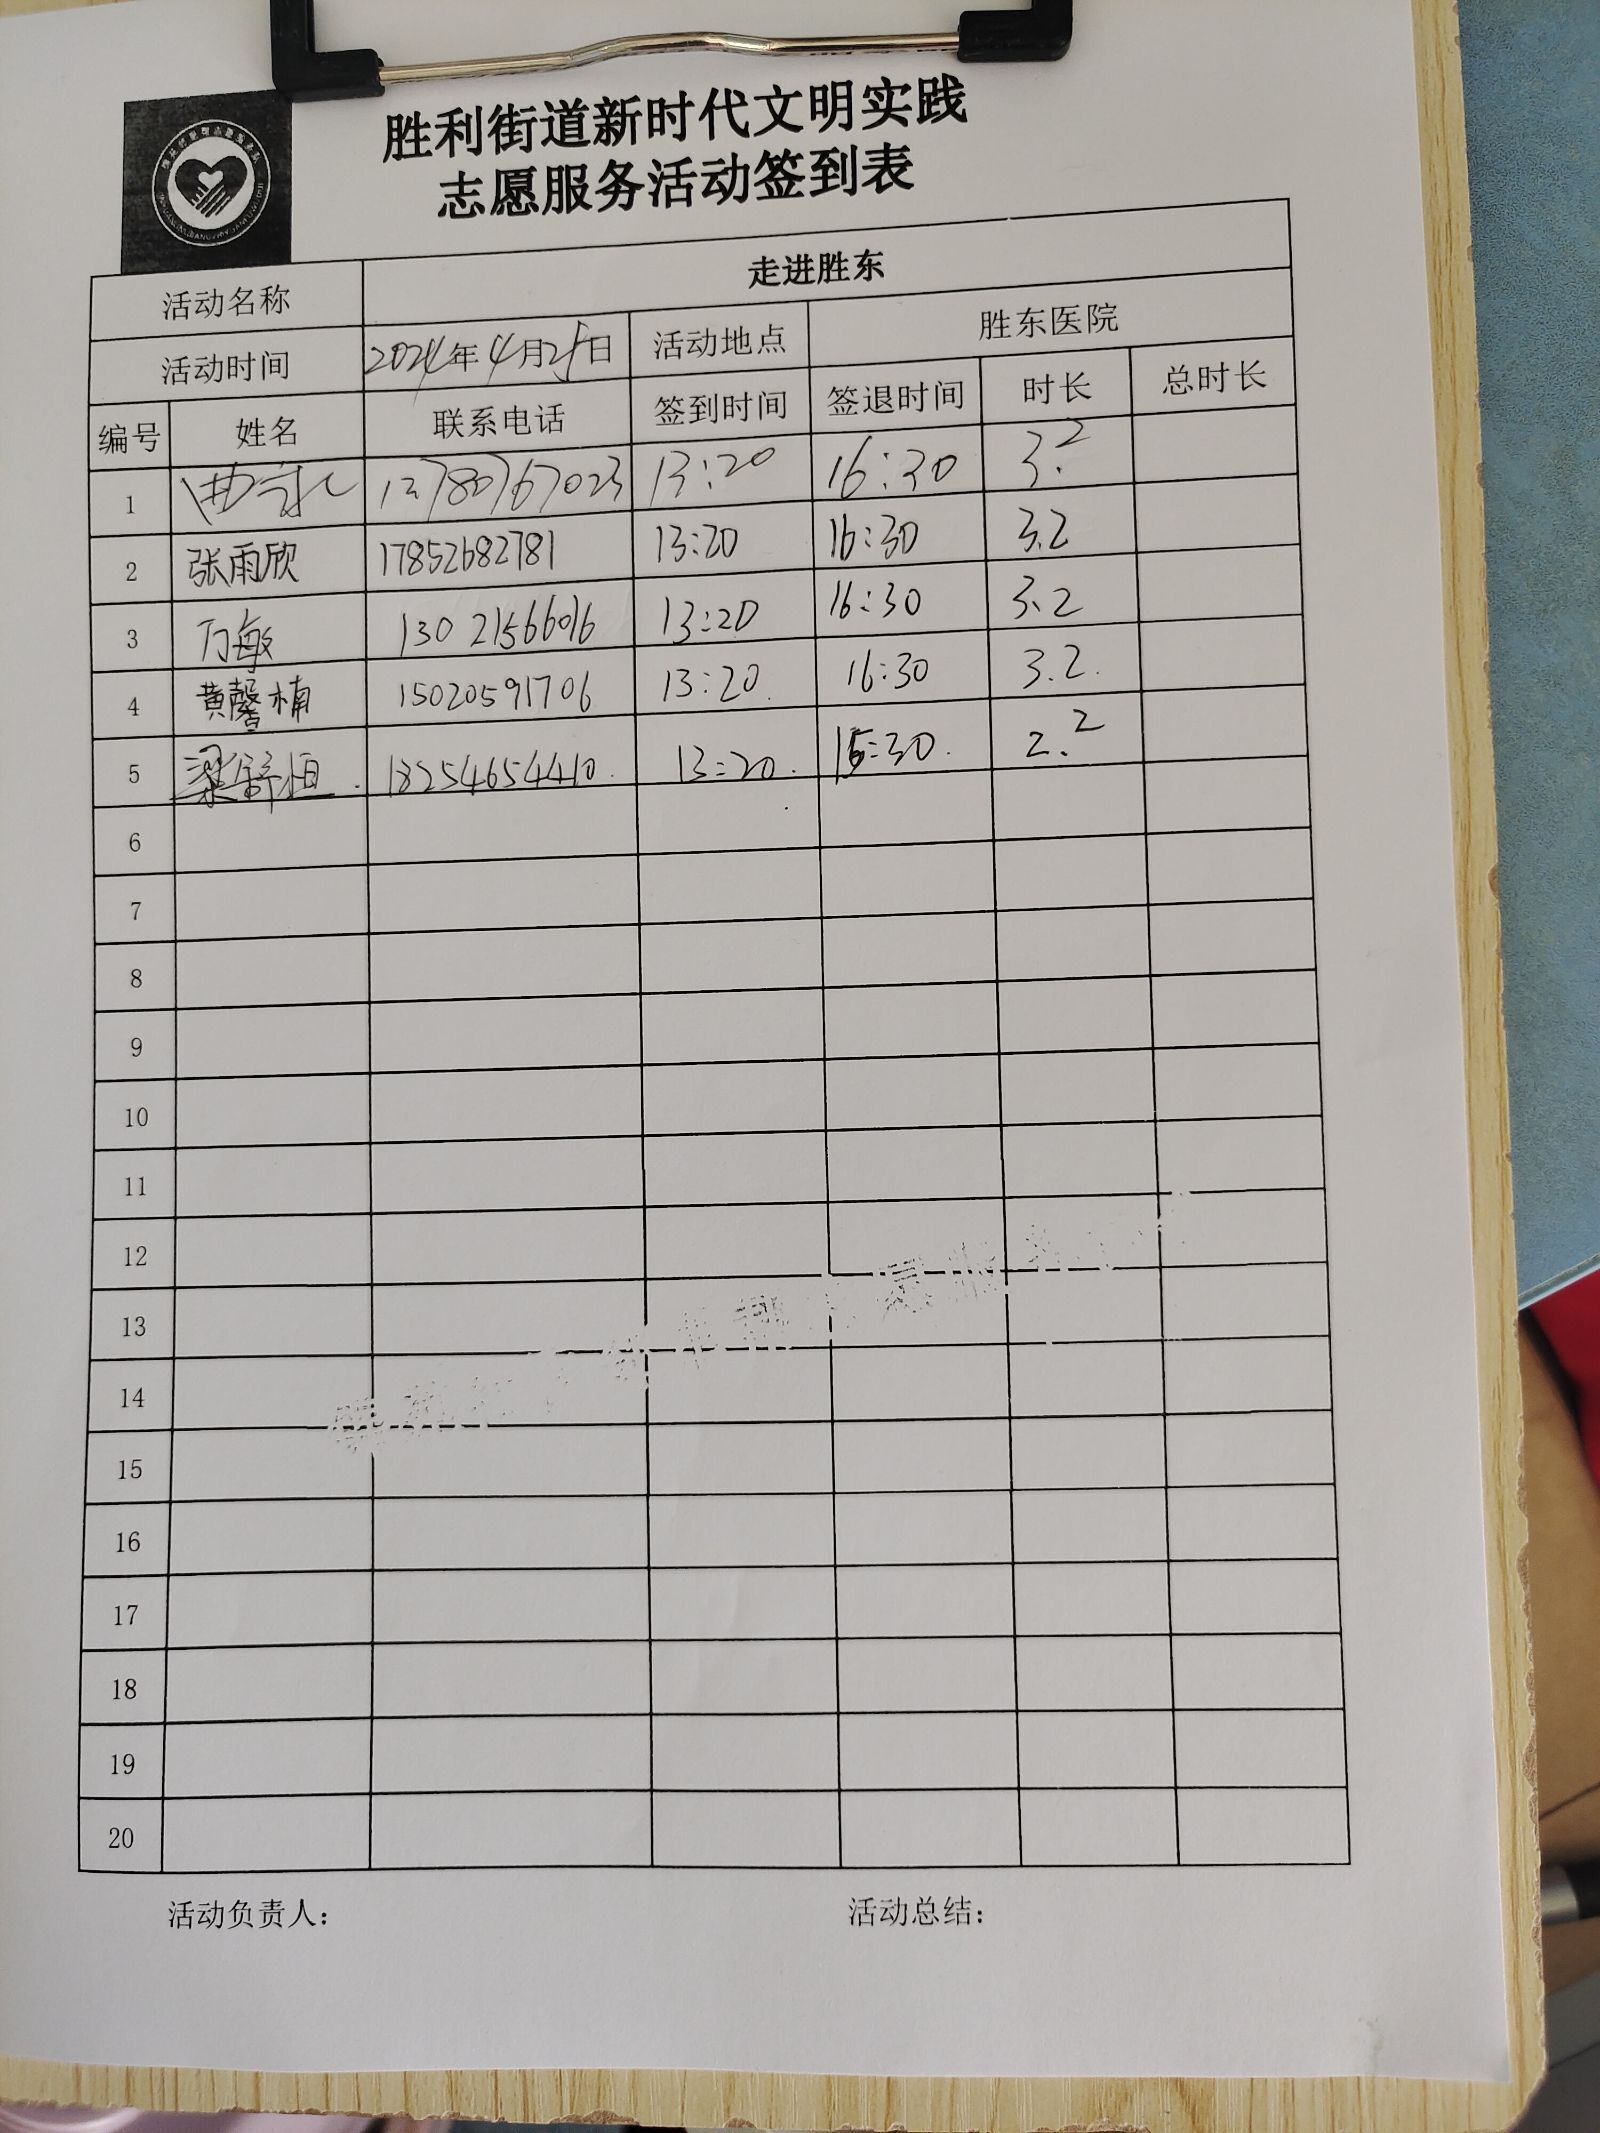 胜利街道新时代文明实践
志愿服务活动签到表
活动名称 走进胜东
活动时间 2024年4月25日 活动地点 胜东医院
编号 姓名 联系电话 签到时间 签退时间 时长 总时长
1 13780767023 13:20 16:30 3.2
2 张雨欣 17852682781 13:20 16:30 3.2
3 万敏 13021566016 13:20 16:30 3.2
4 黄馨楠 15020591706 13:20. 16:30 3.2.
5 梁舒恒. 18254654410. 13:20. 15:30. 2.2
6
7
8
9
10
11
12
13
14
15
16
17
18
19
20
活动负责人: 活动总结: